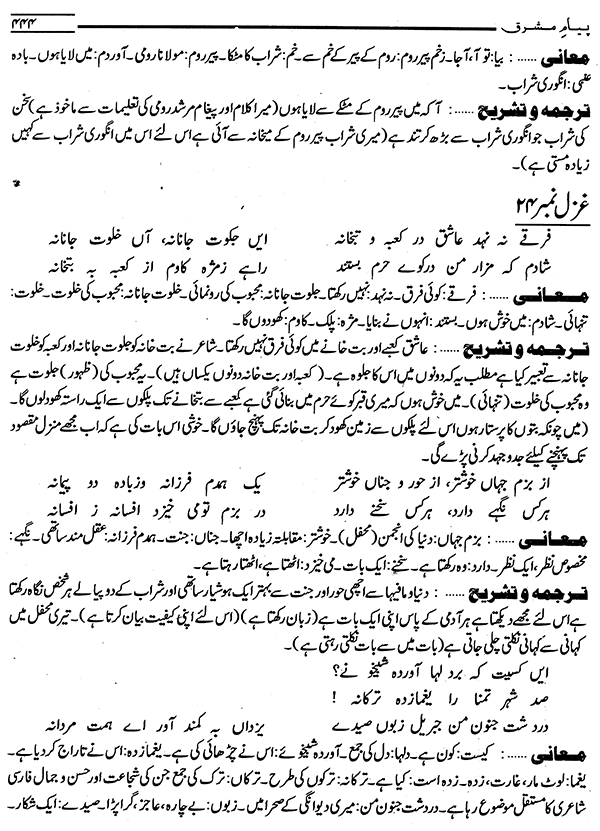 پیامِ مشرق ۴۴۴
معانی ...... : بیا: تو آ، آجا۔ زخمِ پیرِ روم: روم کے پیر کے خم سے ۔ خم: شراب کا مٹکا۔ پیرِ روم: مولانا رومی۔ آوردم: میں لایا ہوں۔ بادہ
عنبی: انگوری شراب۔
ترجمہ و تشریح ...... : آ کہ میں پیرِ روم کے مٹکے سے لایا ہوں (میرا کلام اور پیغام مرشد رومی کی تعلیمات سے ماخوذ ہے) سخن
کی شراب جو انگوری شراب سے بڑھ کر تند ہے (میری شراب پیرِ روم کے میخانہ سے آئی ہے اس لئے اس میں انگوری شراب سے کہیں
زیادہ مستی ہے)۔
غزل نمبر ۲۴
فرقے نہ نہد عاشق در کعبہ و بتخانہ ایں جلوت جانانہ، آں خلوت جانانہ
شادم کہ مزار من درکوے حرم بستند راہے زمژہ کاوم از کعبہ بہ بتخانہ
معانی ...... : فرقے: کوئی فرق۔ نہ نہد: نہیں رکھتا۔ جلوت جانانہ: محبوب کی رونمائی۔ خلوت جانانہ: محبوب کی خلوت۔ خلوت:
تنہائی۔ شادم: میں خوش ہوں۔ بستند: انہوں نے بنایا۔ مژہ: پلک۔ کاوم: کھودوں گا۔
ترجمہ و تشریح ...... : عاشق کعبے اور بت خانے میں کوئی فرق نہیں رکھتا۔ شاعر نے بت خانہ کو جلوت جانانہ اور کعبہ کو خلوت
جانانہ سے تعبیر کیا ہے مطلب یہ کہ دونوں میں اس کا جلوہ ہے۔ (کعبہ اور بت خانہ دونوں یکساں ہیں)۔ یہ محبوب کی (ظہور) جلوت ہے
وہ محبوب کی خلوت (تنہائی)۔ میں خوش ہوں کہ میری قبر کوئے حرم میں بنائی گئی ہے کعبے سے بتخانے تک پلکوں سے ایک راستہ کھودلوں گا۔
(میں چونکہ بتوں کا پرستار ہوں اس لئے پلکوں سے زمین کھود کر بت خانہ تک پہنچ جاؤں گا۔ خوشی اس بات کی ہے کہ اب مجھے منزل مقصود
تک پہنچنے کیلئے جدوجہد کرنی پڑے گی۔
از بزم جہاں خوشتر، از حور و جناں خوشتر یک ہمدم فرزانہ وزبادہ دو پیمانہ
ہرکس نگہے دارد، ہرکس سخنے دارد در بزم تومی خیزد افسانہ ز افسانہ
معانی ...... : بزم جہاں: دنیا کی انجمن (محفل)۔ خوشتر: مقابلتہ زیادہ اچھا۔ جناں: جنت۔ ہمدم فرزانہ: عقل مند ساتھی۔ نگہے:
مخصوص نظر، ایک نظر۔ دارد: وہ رکھتا ہے۔ سخنے: ایک بات۔ می خیزد: اٹھتا ہے، اٹھتا رہتا ہے۔
ترجمہ و تشریح ...... : دنیا و مافیہا سے اچھی حور اور جنت سے بہتر ایک ہوشیار ساتھی اور شراب کے دو پیالے ہر شخص نگاہ رکھتا
ہے اس لئے مجھے دیکھتا ہے ہر آدمی کے پاس اپنی ایک بات ہے (زبان رکھتا ہے) (اس لئے اپنی کیفیت بیان کرتا ہے)۔ تیری محفل میں
کہانی سے کہانی نکلتی چلی جاتی ہے (بات میں سے بات نکلتی رہتی ہے)۔
ایں کسیت کہ بر دلہا آوردہ شبیخو نے؟
صد شہر تمنا را یغمازدہ ترکانہ !
در دشت جنون من جبریل زبوں صیدے یزداں بہ کمند آور اے ہمت مردانہ
معانی ...... : کیست: کون ہے۔ دلہا: دل کی جمع۔ آوردہ شبیخونے: اس نے چڑھائی کی ہے۔ یغمازدہ: اس نے تاراج کر دیا ہے۔
یغما: لوٹ مار، غارت، زدہ۔ زدہ است: کیا ہے۔ ترکانہ: ترکوں کی طرح۔ ترکاں: ترک کی جمع جن کی شجاعت اور حسن و جمال فارسی
شاعری کا مستقل موضوع رہا ہے۔ در دشت جنون من: میری دیوانگی کے صحرا میں۔ زبوں: بے چارہ، عاجز، گرا پڑا۔ صیدے: ایک شکار۔